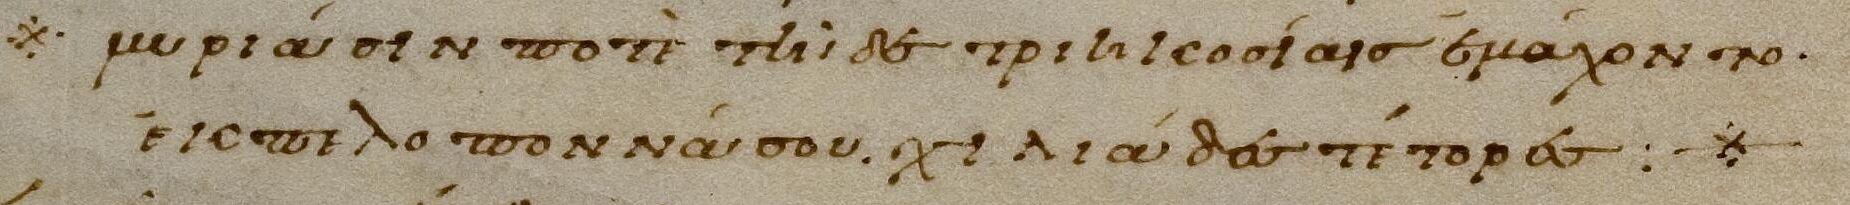 ※ μυριάσιν ποτὲ τῆιδε τριηκοσίαισ ἐμάχοντο.
ἐκ πελοποννάσου. χιλιάδες τέτορες : ※